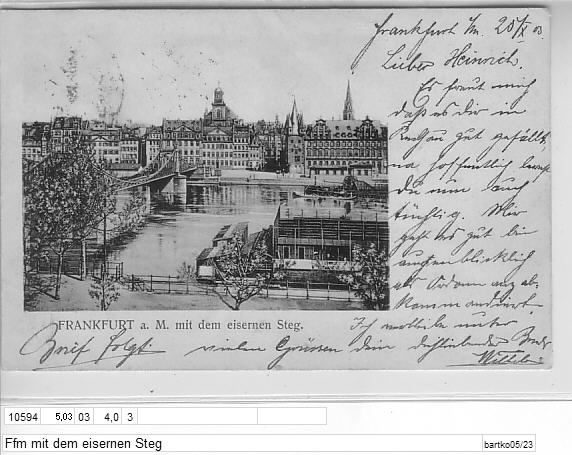 Frankfurt /M. 25/X 03
Lieber Heinrich.
Es freut mich
daß es dir in
gut gefällt
na hoffentlich
du nun auch
tüchtig. Mir
geht es gut bin
augenblicklich
als Ordonanz ab-
kommandiert.
Ich verbleibe unter
FRANKFURT a. M. mit dem eisernen Steg.
Brief folgt
vielen Grüssen dein dichliebender Bruder
Wilhelm
10594 5,03 03 4,0 3
Ffm mit dem eisernen Steg
bartko05/23